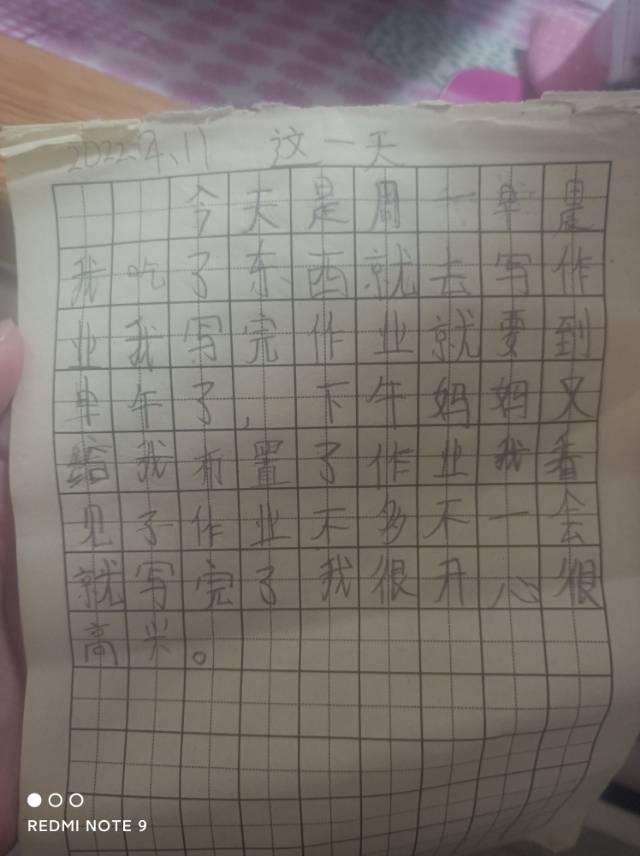 2022.4.11 这一天
今天是周一早晨
我吃了东西就去写作
业我写完作业就要到
早午了，下午妈妈又
给我布置了作业我看
见了作业不多不一会
就写完了我很开心很
高兴。
REDMI NOTE 9